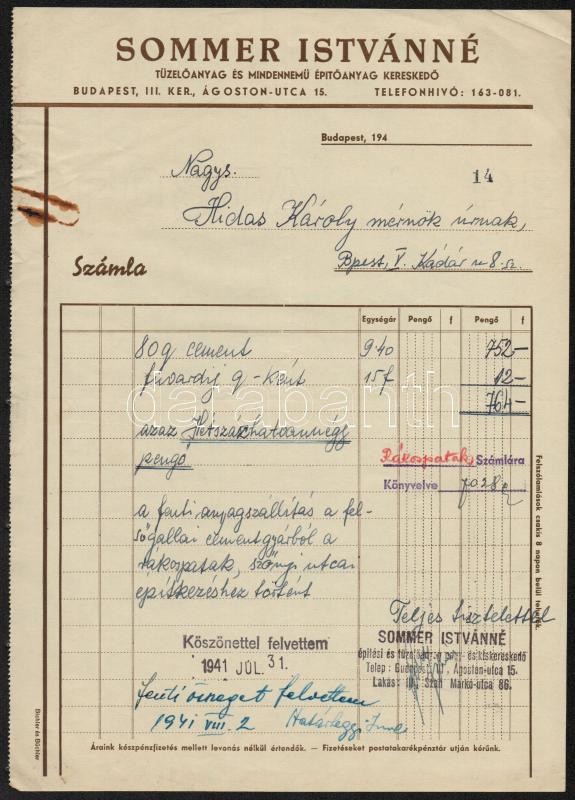 SOMMER ISTVÁNNÉ
TÜZELŐANYAG ÉS MINDENNEMÜ ÉPITŐANYAG KERESKEDŐ
BUDAPEST, III. KER., ÁGOSTON-UTCA 15. TELEFONHIVÓ: 163-081.
Budapest, 194
Nagys. 14
Hidas Károly mérnök úrnak,
Számla
Bpest, V. Kádár u 8. sz.
Egységár Pengő f Pengő f
80 q cement 9.40 752.—
fuvardíj q-ként 15 f 12.—
764.—
azaz Hétszázhatvannégy
pengő
Rákospatak Számlára
Könyvelve 7028
a fenti anyagszállítás a fel-
sőgallai cementgyárból a
rákospatak, szőnyi utcai
építkezéshez történt
Teljes tisztelettel
Köszönettel felvettem
1941 JUL. 31.
SOMMER ISTVÁNNÉ
építési és tüzelőanyag nagy- és kiskereskedő
Telep: Budapest, III., Ágoston-utca 15.
Lakás: III., Szent Márko-utca 86.
fenti összeget felvettem
1941 VIII. 2
Áraink készpénzfizetés mellett levonás nélkül értendők. — Fizetéseket postatakarékpénztár utján kérünk.
Felszólamlások csakis 8 napon belül
Bichler és Büchler
darabanth